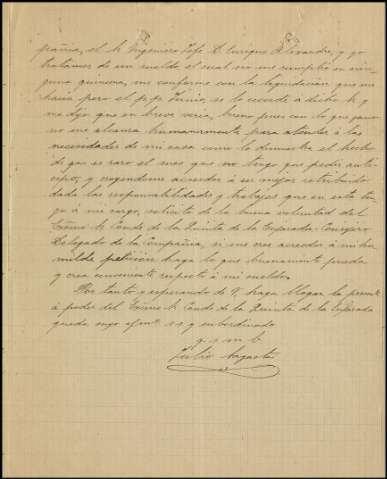 pañia, el Sr Ingeniero Jefe D. Enrique Alexandre, y yo
tratamos de un sueldo el cual no me cumplio en nin-
guna quincena, me conforme con la liquidacion que me
hacia pero el pp. Junio, se lo recorde a dicho Sr y
me dijo que en breve veria, bueno pues con lo que gano
no me alcanza humanamente para atender á las
necesidades de mi casa como lo demuestra el hecho
de que es raro el mes que no tengo que pedir anti-
cipo, y creyendome acreedor á ser mejor retribuido
dada las responsabilidades y trabajos que en esta ten-
go á mi cargo, solicito de la buena voluntad del
Exmo Sr Conde de la Quinta de la Enjarada Consejero
Delegado de la Compañia, si me cree acreedor á mi hu-
milde peticion haga lo que buenamente pueda
y crea conveniente respecto á mi sueldo.
Por tanto y esperando de V. haga llegar la presente
á poder del Exmo Sr Conde de la Quinta de la Enjarada
queda suyo afmo s.s y subordinado
q s m b
Julio